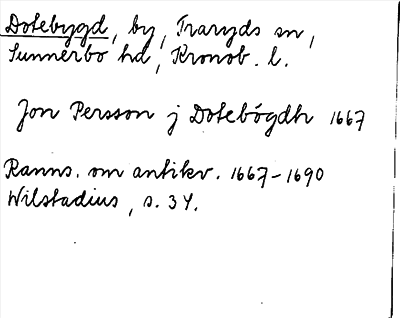 Dotebygd, by, Traryds sn,
Sunnerbo hd, Kronob. l.
Jon Persson j Dotebögdh 1667
Ranns. om antikv. 1667-1690
Wilstadius, s. 34.